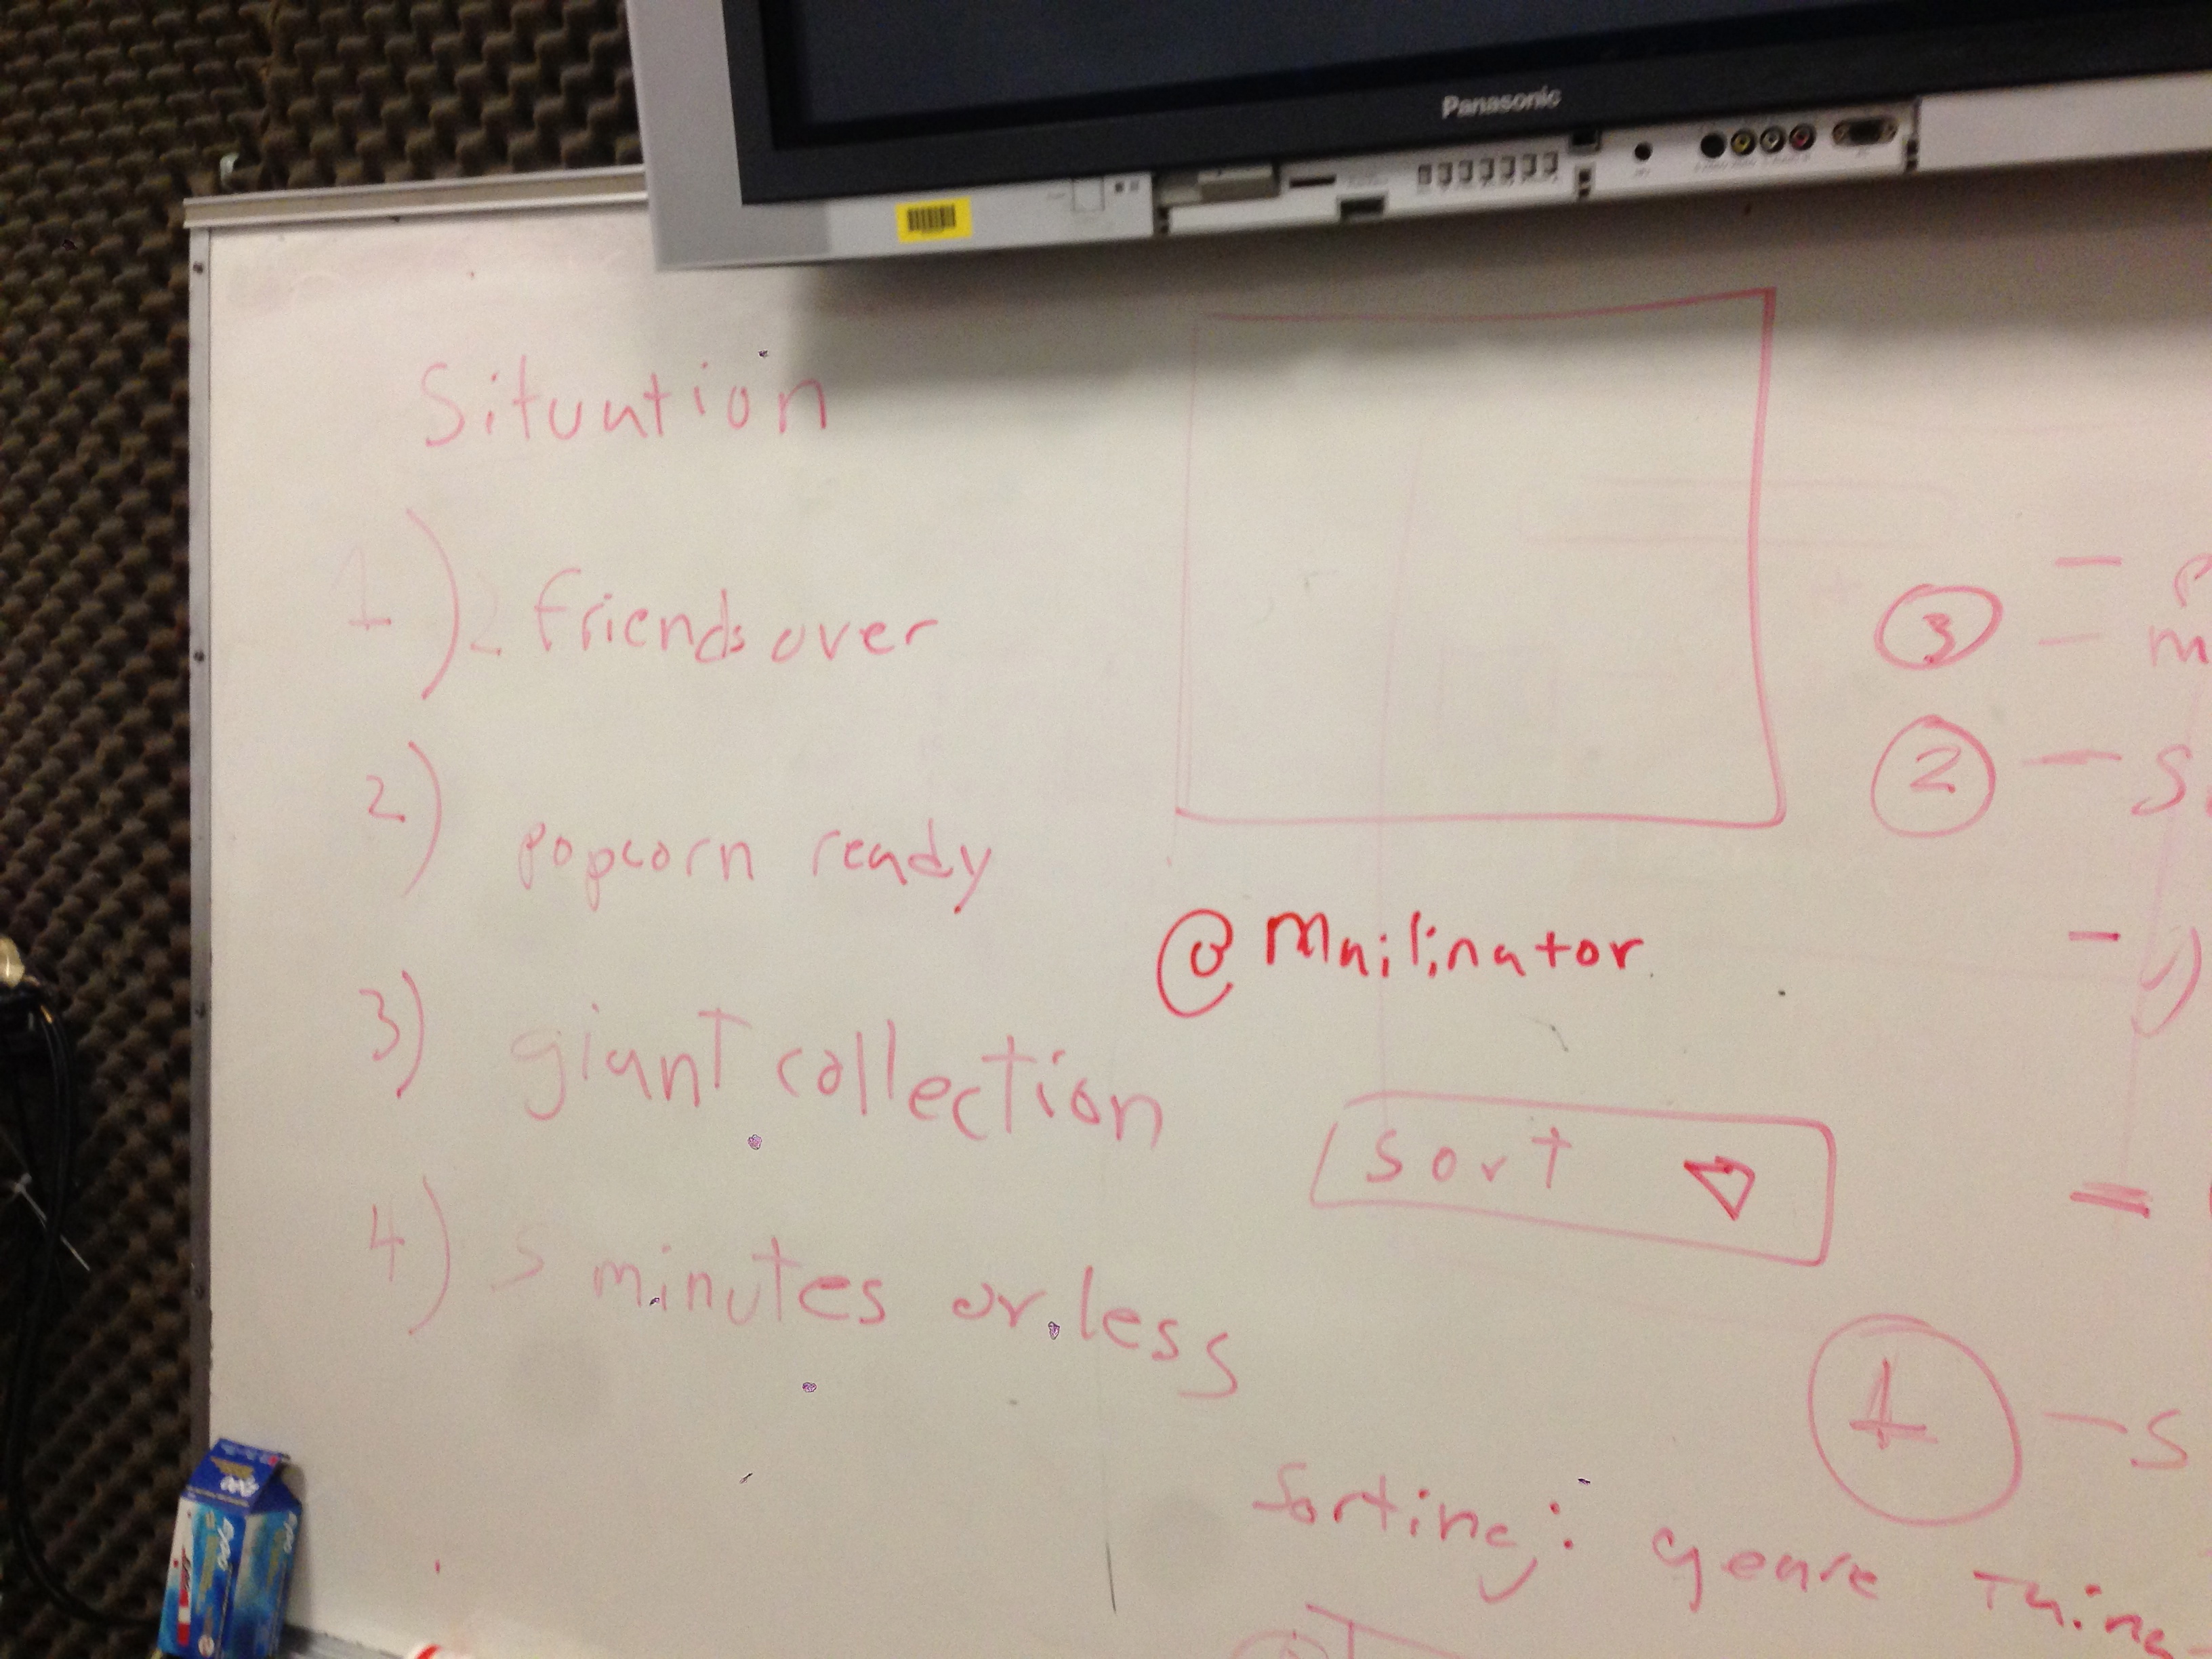 Panasonic
Situation
1) 2 friends over
2) popcorn ready
3) giant collection
4) 5 minutes or less
@Mailinator
sort
3 –
– m
2 – S
1 – S
Sorting: genre Thing
expo